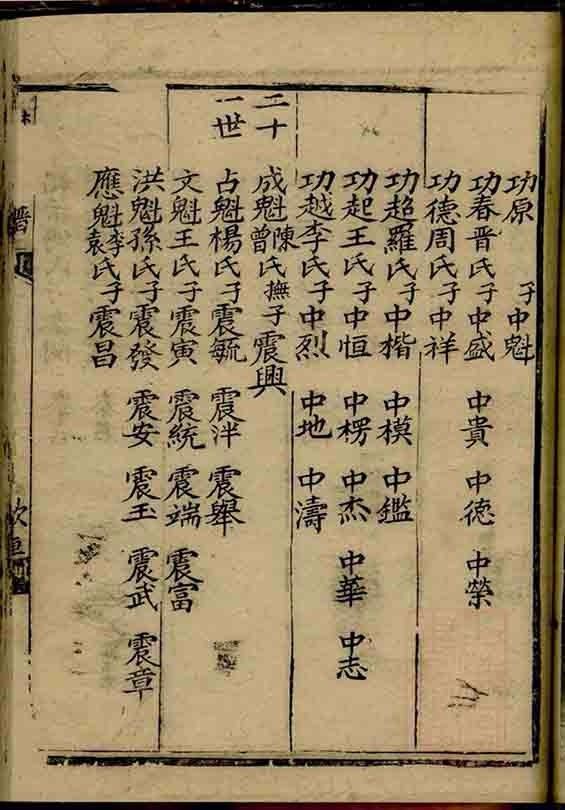 功原 子中魁
功春晋氏子中盛 中貴 中德 中榮
功德周氏子中祥
功超羅氏子中楷 中模 中鑑
功起王氏子中恒 中楞 中杰 中華 中志
功越李氏子中烈 中地 中濤
二十一世
成魁陳曾氏撫子震興
占魁楊氏子震毓 震泮 震舉
文魁王氏子震寅 震統 震端 震富
洪魁孫氏子震發 震安 震玉 震武 震章
應魁李袁氏子震昌